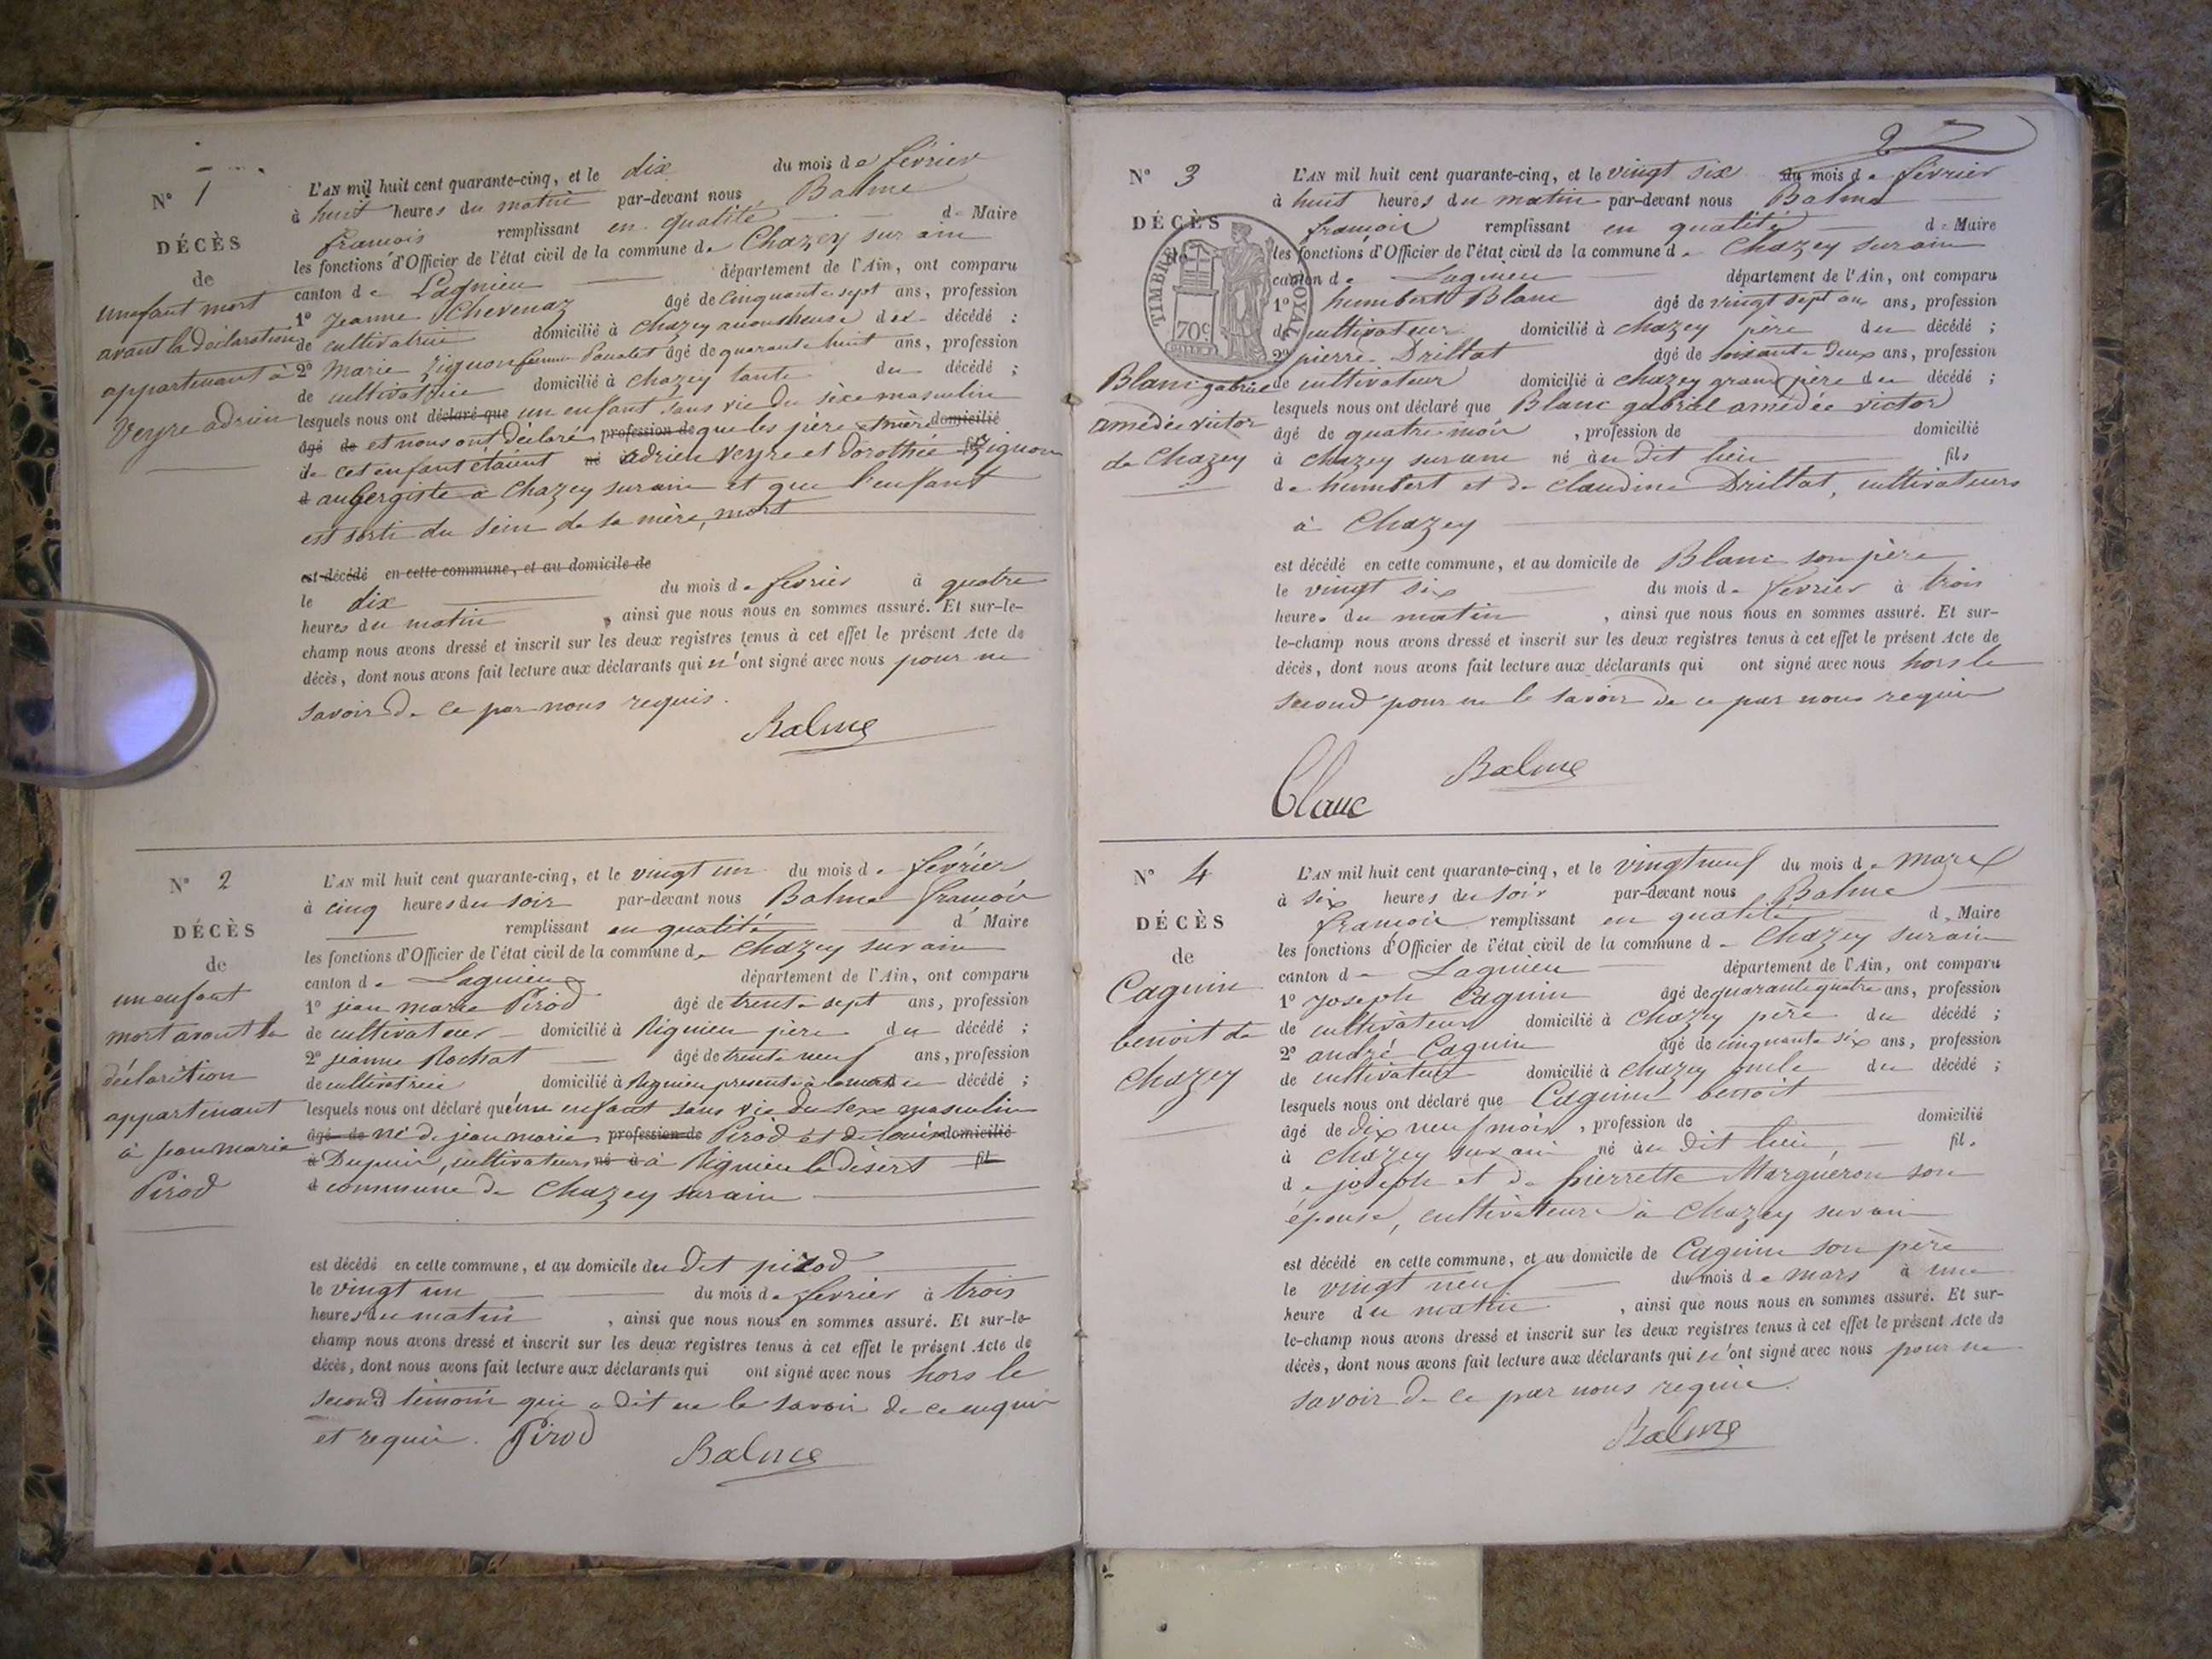 N° 1
DÉCÈS
de
un enfant mort
avant la déclaration
appartenant à
Veyre adrien
L'AN mil huit cent quarante-cinq, et le dix du mois de février
à huit heures du matin par-devant nous Balme
francois remplissant en qualité de Maire
les fonctions d'Officier de l'état civil de la commune de Chazey sur ain
canton de Lagnieu département de l'Ain, ont comparu
1° Jeanne Chevenaz âgé de cinquante sept ans, profession
de cultivatrice domicilié à Chazey décédé ;
2° Marie Zignon femme âgé de quarante huit ans, profession
de cultivatrice domicilié à Chazey tante du décédé ;
lesquels nous ont déclaré que un enfant sans vie du sèxe masculin
âgé de et nous ont déclaré profession de que les père et mère domicilié
de cet enfant étaient né adrien Veyre et Dorothée Zignon
d aubergiste à Chazey sur ain et que l'enfant
est sorti du sein de sa mère, mort
est décédé en cette commune, et au domicile de
le dix du mois de fevrier à quatre
heures du matin , ainsi que nous nous en sommes assuré. Et sur-le-
champ nous avons dressé et inscrit sur les deux registres tenus à cet effet le présent Acte de
décès, dont nous avons fait lecture aux déclarants qui n'ont signé avec nous pour ne
savoir de ce par nous requis.
Balme
N° 2
DÉCÈS
de
un enfant
mort avant la
déclaration
appartenant
à Jean marie
Pirod
L'AN mil huit cent quarante-cinq, et le vingt un du mois de février
à cinq heures du soir par-devant nous Balme francois
remplissant en qualité d Maire
les fonctions d'Officier de l'état civil de la commune de Chazey sur ain
canton de Lagnieu département de l'Ain, ont comparu
1° jean marie Pirod âgé de trente sept ans, profession
de cultivateur domicilié à Rignieu père du décédé ;
2° jeanne Rochat âgé de trente neuf ans, profession
de cultivatrice domicilié à Rignieu présente à décédé ;
lesquels nous ont déclaré qu'un enfant sans vie du sexe masculin
âgé de né de jean marie profession de Pirod et de louise domicilié
à Dupuis, cultivateurs né à à Rignieu le désert fil
d commune de Chazey sur ain
est décédé en cette commune, et au domicile du dit pirod
le vingt un du mois de fevrier à trois
heures du matin , ainsi que nous nous en sommes assuré. Et sur-le-
champ nous avons dressé et inscrit sur les deux registres tenus à cet effet le présent Acte de
décès, dont nous avons fait lecture aux déclarants qui ont signé avec nous hors le
second témoin qui a dit ne le savoir de ce enquis
et requis. Pirod
Balme
2
N° 3
DÉCÈS
de
TIMBRE ROYAL
70c
Blanc gabriel
amédée victor
de Chazey
L'AN mil huit cent quarante-cinq, et le vingt six du mois de février
à huit heures du matin par-devant nous Balme
francois remplissant en qualité de Maire
les fonctions d'Officier de l'état civil de la commune de Chazey sur ain
canton de Lagnieu département de l'Ain, ont comparu
1° humbert Blanc âgé de vingt sept ans ans, profession
de cultivateur domicilié à Chazey père du décédé ;
2° pierre Drillat âgé de soisante deux ans, profession
de cultivateur domicilié à Chazey grand père du décédé ;
lesquels nous ont déclaré que Blanc gabriel amédée victor
âgé de quatre mois , profession de domicilié
à Chazey sur ain né au dit lieu fils
de humbert et de claudine Drillat, cultivateurs
à Chazey
est décédé en cette commune, et au domicile de Blanc son père
le vingt six du mois de fevrier à trois
heures du matin , ainsi que nous nous en sommes assuré. Et sur-
le-champ nous avons dressé et inscrit sur les deux registres tenus à cet effet le présent Acte de
décès, dont nous avons fait lecture aux déclarants qui ont signé avec nous hors le
second pour ne le savoir de ce par nous requis
Balme
Blanc
N° 4
DÉCÈS
de
Caguin
benoit de
Chazey
L'AN mil huit cent quarante-cinq, et le vingt neuf du mois de mars
à six heures du soir par-devant nous Balme
francois remplissant en qualité de Maire
les fonctions d'Officier de l'état civil de la commune de Chazey sur ain
canton de Lagnieu département de l'Ain, ont comparu
1° Joseph Caguin âgé de quarante quatre ans, profession
de cultivateur domicilié à Chazey père du décédé ;
2° andré Caguin âgé de cinquante six ans, profession
de cultivateur domicilié à Chazey oncle du décédé ;
lesquels nous ont déclaré que Caguin benoit
âgé de dix neuf mois , profession de domicilié
à Chazey sur ain né au dit lieu, fils
de joseph et de pierrette Marguéron son
épouse, cultivateurs à Chazey sur ain
est décédé en cette commune, et au domicile de Caguin son père
le vingt neuf du mois de mars à une
heure du matin , ainsi que nous nous en sommes assuré. Et sur-
le-champ nous avons dressé et inscrit sur les deux registres tenus à cet effet le présent Acte de
décès, dont nous avons fait lecture aux déclarants qui n'ont signé avec nous pour ne
savoir de ce par nous requis.
Balme